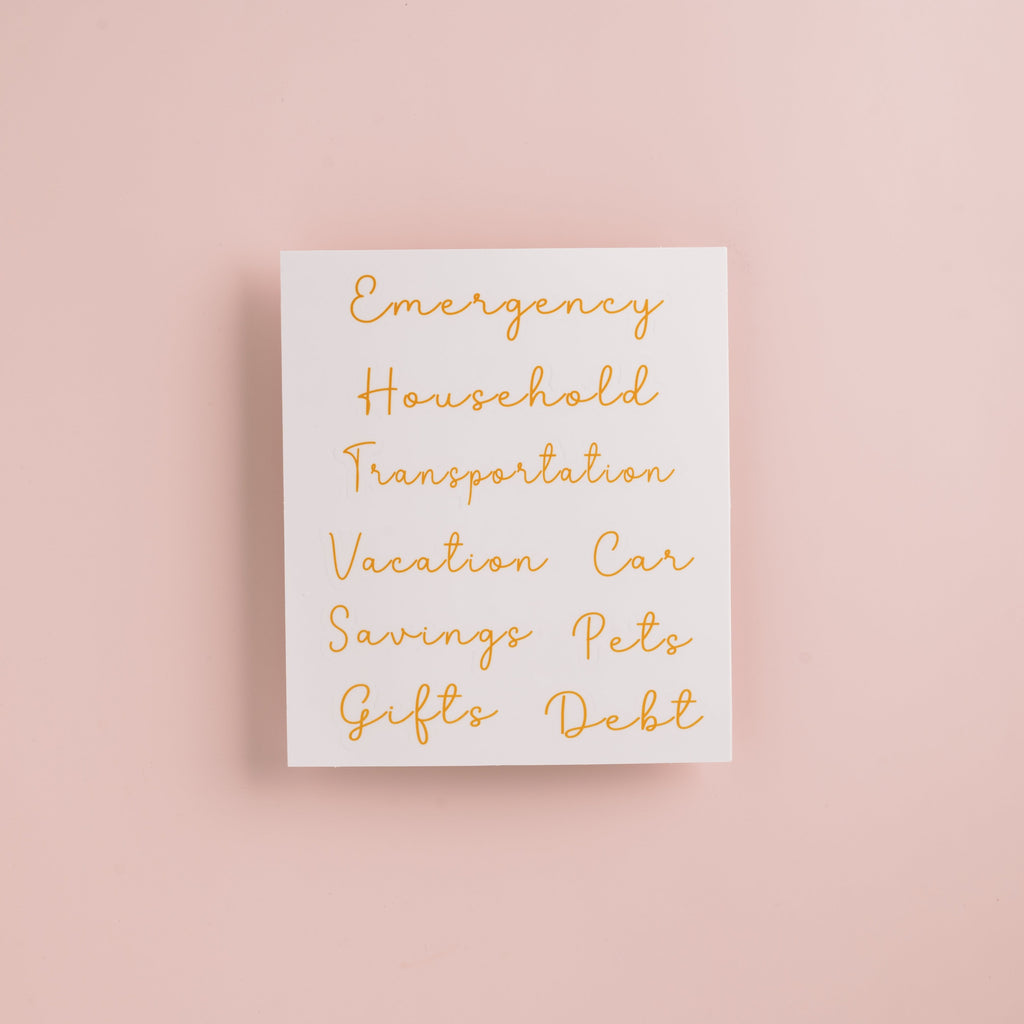 Emergency
Household
Transportation
Vacation Car
Savings Pets
Gifts Debt